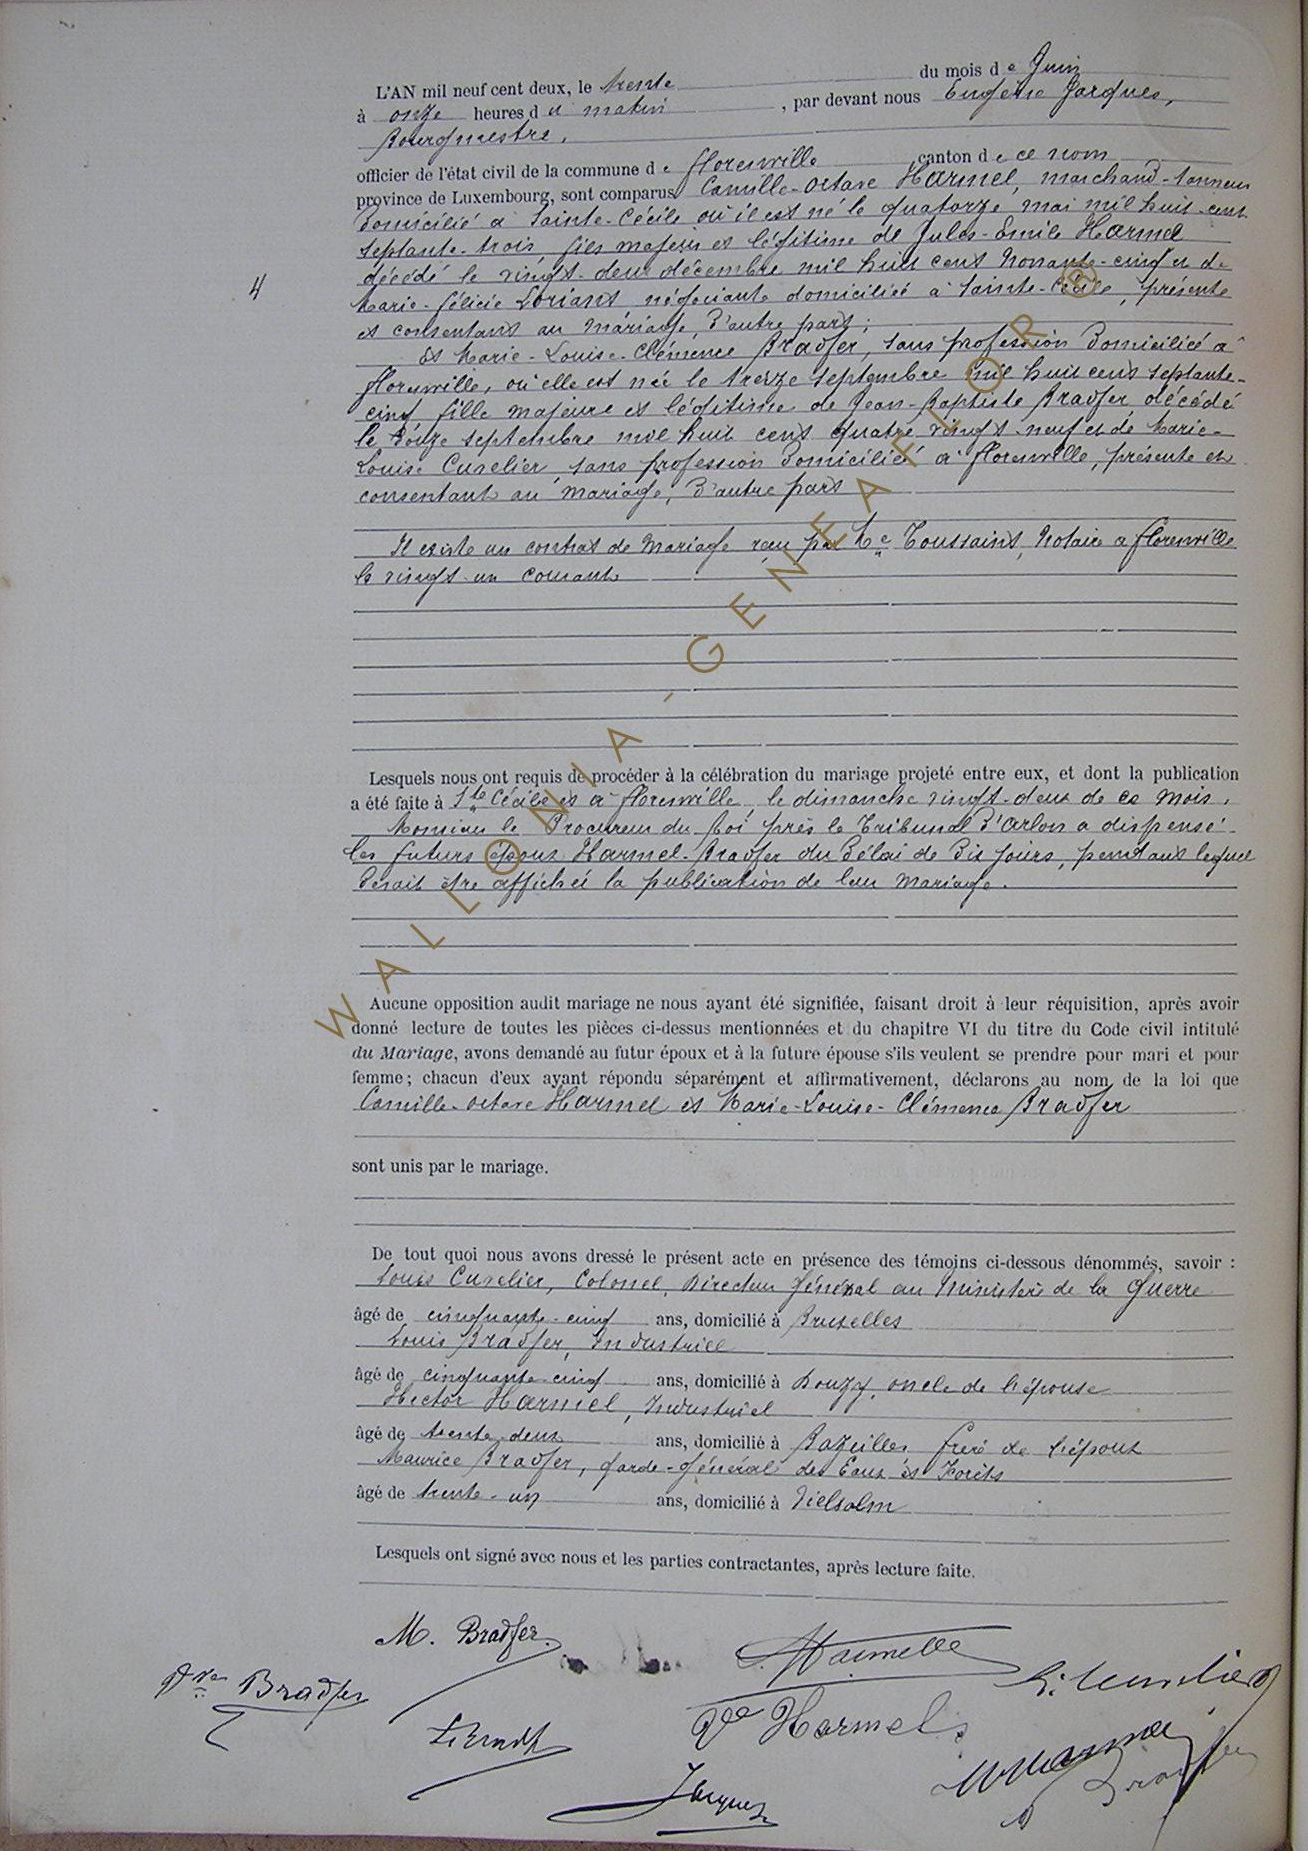 L'AN mil neuf cent deux, le trente du mois de Juin
à onze heures du matin, par devant nous Eugène Jacques,
Bourgmestre,
officier de l'état civil de la commune de Florenville canton de ce nom
province de Luxembourg, sont comparus Camille-Octave Harmel, marchand-tanneur
domicilié à Sainte-Cécile où il est né le quatorze mai mil huit cent
septante-trois, fils majeur et légitime de Jules-Emile Harmel
décédé le vingt-deux décembre mil huit cent nonante-cinq et de
4
Marie-Félicie Loriant négociante domiciliée à Sainte-Cécile, présente
et consentant au mariage, d'autre part;
Et Marie-Louise-Clémence Bradfer, sans profession domiciliée à
Florenville, où elle est née le treize septembre mil huit cent septante-
cinq fille majeure et légitime de Jean-Baptiste Bradfer décédé
le douze septembre mil huit cent quatre vingt-neuf et de Marie-
Louise Cuvelier, sans profession domiciliée à Florenville, présente et
consentant au mariage, d'autre part
Il existe un contrat de mariage reçu par Me Toussaint, Notaire à Florenville
le vingt-un courant
Lesquels nous ont requis de procéder à la célébration du mariage projeté entre eux, et dont la publication
a été faite à Ste Cécile et à Florenville, le dimanche vingt-deux de ce mois.
Monsieur le Procureur du Roi près le Tribunal d'Arlon a dispensé
les futurs époux Harmel-Bradfer du délai de dix jours, pendant lequel
devait être affichée la publication de leur mariage.
Aucune opposition audit mariage ne nous ayant été signifiée, faisant droit à leur réquisition, après avoir
donné lecture de toutes les pièces ci-dessus mentionnées et du chapitre VI du titre du Code civil intitulé
du Mariage, avons demandé au futur époux et à la future épouse s'ils veulent se prendre pour mari et pour
femme; chacun d'eux ayant répondu séparément et affirmativement, déclarons au nom de la loi que
Camille-Octave Harmel et Marie-Louise-Clémence Bradfer
sont unis par le mariage.
De tout quoi nous avons dressé le présent acte en présence des témoins ci-dessous dénommés, savoir :
Louis Cuvelier, Colonel, Directeur général au Ministère de la Guerre
âgé de cinquante-cinq ans, domicilié à Bruxelles
Louis Bradfer, Industriel
âgé de cinquante-cinq ans, domicilié à Douzy, oncle de l'épouse
Hector Harmel, Industriel
âgé de trente-deux ans, domicilié à Bazeilles frère de l'époux
Maurice Bradfer, garde-général des Eaux et Forêts
âgé de trente-un ans, domicilié à Vielsalm
Lesquels ont signé avec nous et les parties contractantes, après lecture faite.
M. Bradfer
Vve Bradfer
Vve Harmel
Jacques
WALLONIA-GENEAFLOR ®